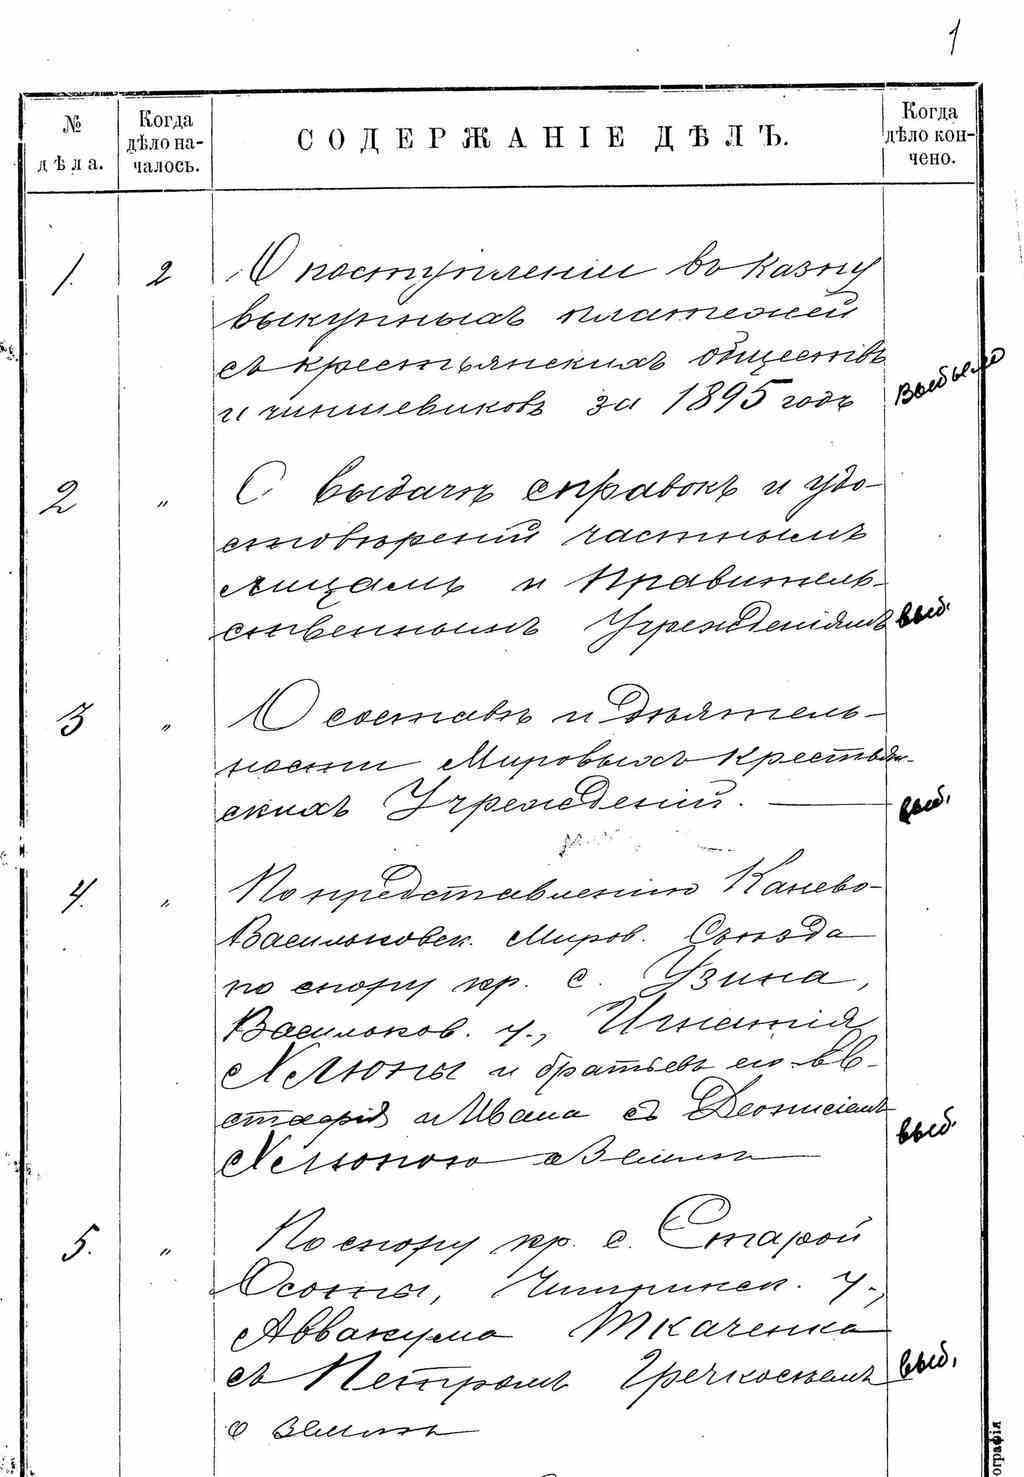 1
№ дѣла.
Когда дѣло началось.
СОДЕРЖАНІЕ ДѢЛЪ.
Когда дѣло кончено.
1. 2 О поступленіи въ казну
выкупныхъ платежей
съ крестьянскихъ обществъ
и чиншевиковъ за 1895 годъ
Выбыло
2 " О выдачѣ справокъ и удо-
стовѣреній частнымъ
лицамъ и Правитель-
ственнымъ Учрежденіямъ
выб.
3 " О составѣ и дѣятель-
ности Мировыхъ крестьян-
скихъ Учрежденій.
выб.
4. " По представленію Канево-
Васильковск. Миров. Съѣзда
по спору кр. с. Узина,
Васильков. у., Игнатія
Хлюпы и братьевъ его Ев-
стафія и Ивана съ Деонисіемъ
Хлюпою о землѣ
выб.
5. " По спору кр. с. Старой
Осоты, Чигиринск. у.,
Аввакума Ткаченка
съ Петромъ Гречкосѣемъ
о землѣ
выб.
ографія